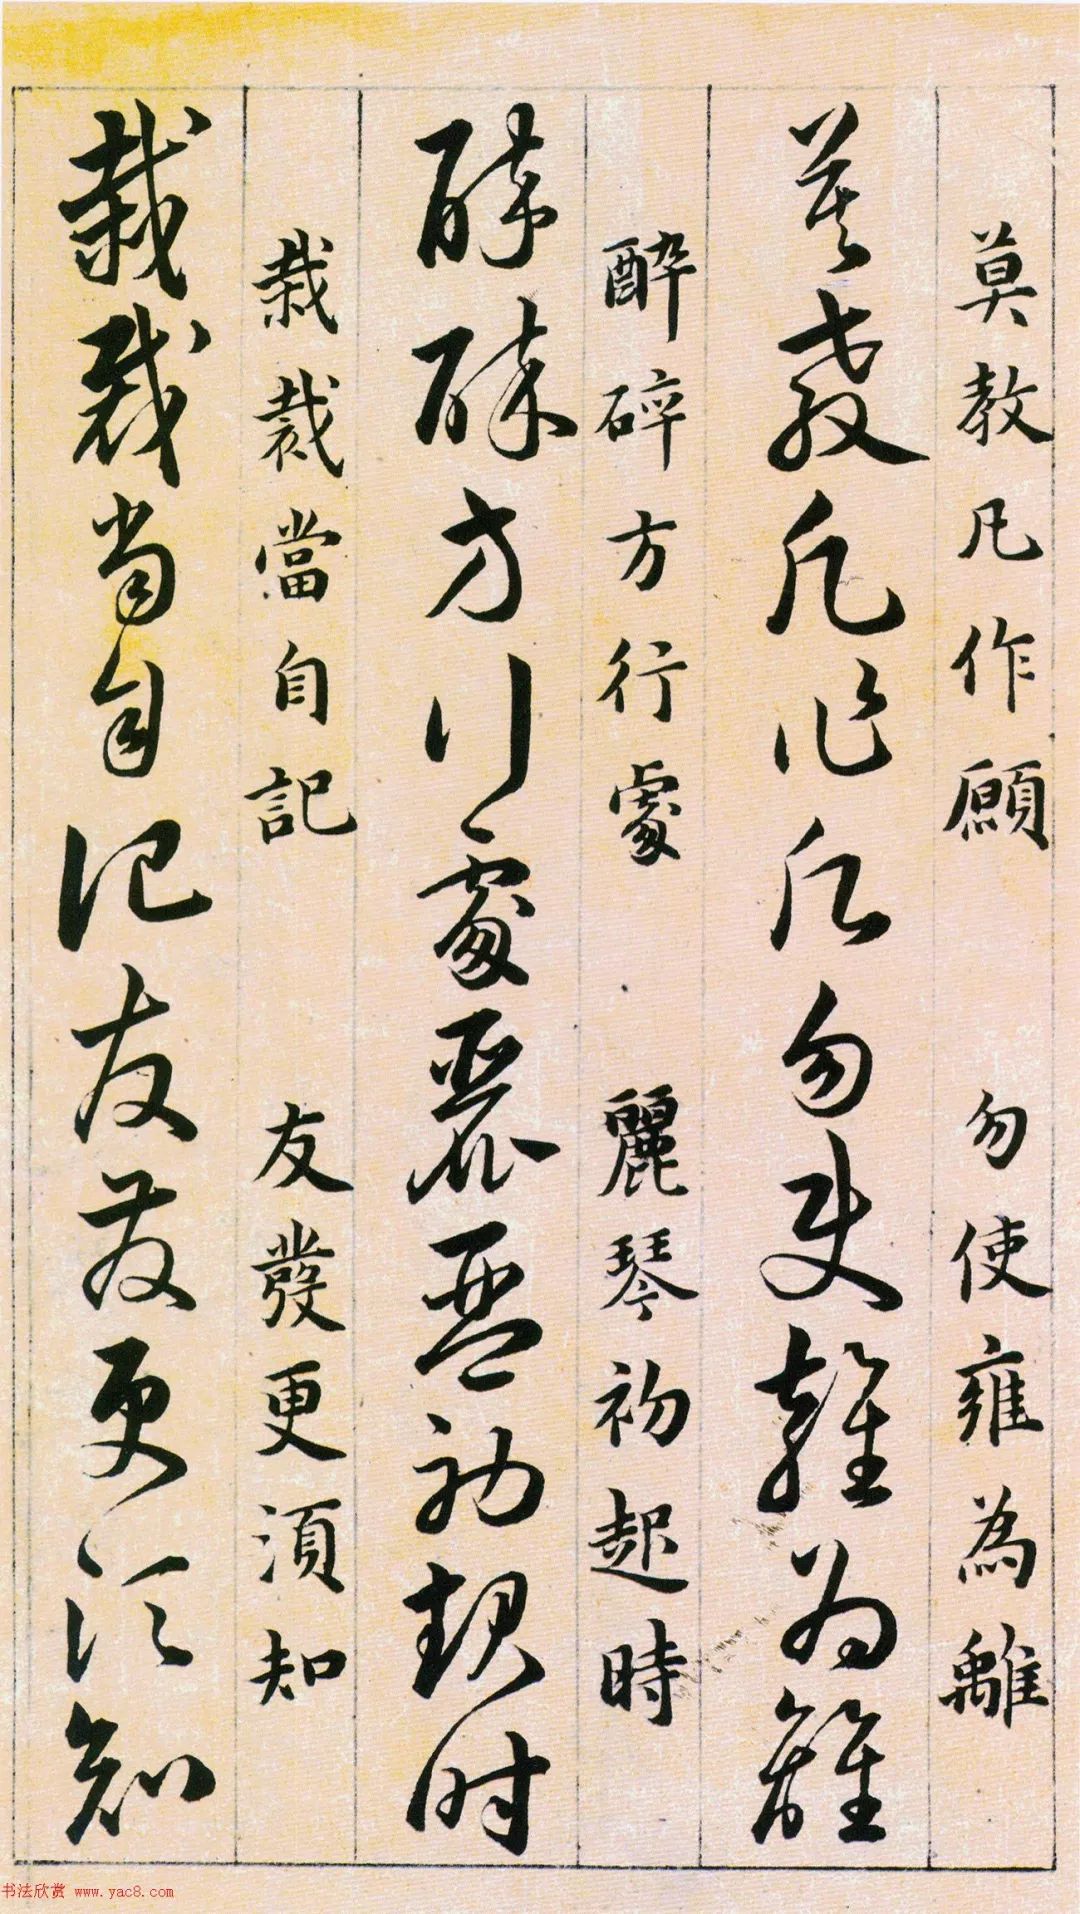 莫教凡作願 勿使雍為離
莫教凡作願勿使雍為離
醉碎方行處 麗琴初起時
醉碎方行處麗琴初起時
栽裁當自記 友發更須知
栽裁當自記友發更須知
书法欣赏 www.yac8.com